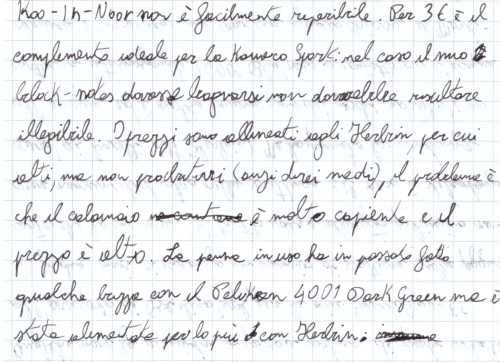 Koo-In-Noor non è facilmente reperibile. Per 3€ è il
complemento ideale per la Kaweco Sport: nel caso il mio
block-notes dovesse bagnarsi non dovrebbe risultare
illegibile. I prezzi sono allineati agli Herbin, per cui
alti, ma non proibitivi (anzi direi medi), il problema è
che il calamaio è molto capiente e il
prezzo è alto. La penna in uso ha in passato fatto
qualche bizza con il Pelikan 4001 Dark Green ma è
stata alimentata per lo più con Herbin.